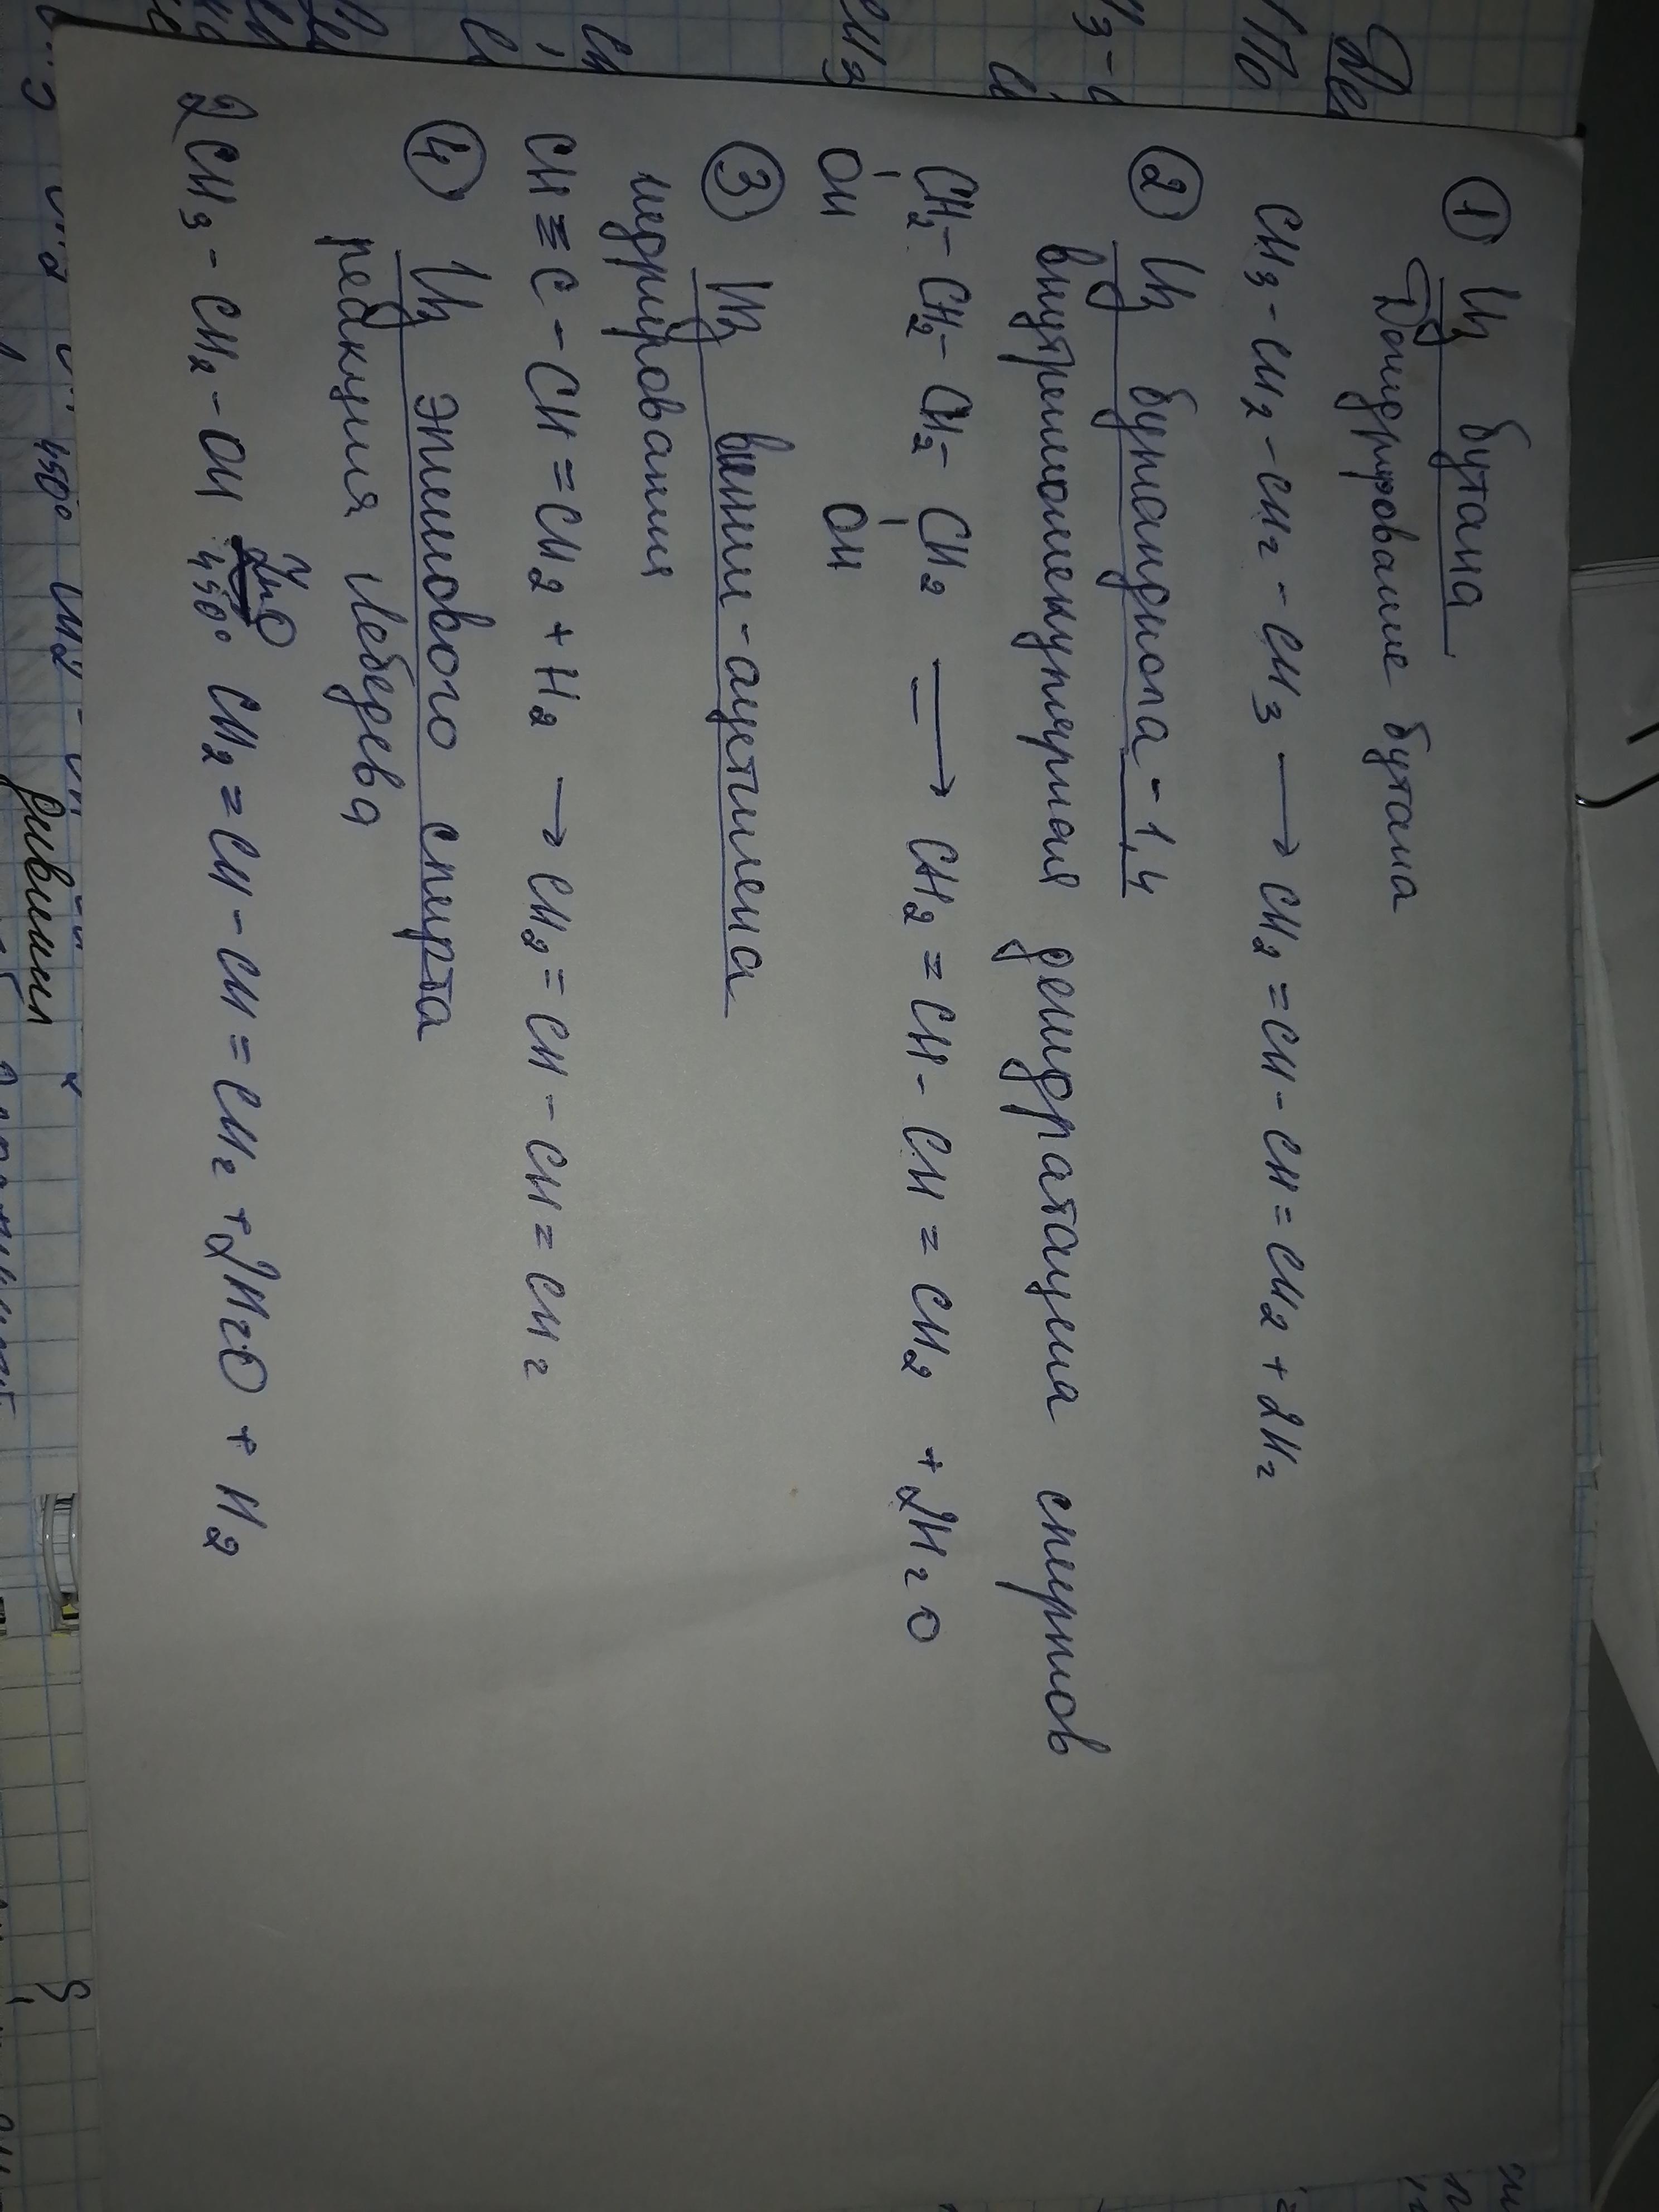 ① Из бутана
Дегидрирование бутана
CH3-CH2-CH2-CH3 → CH2=CH-CH=CH2+2H2
② Из бутандиола-1,4
внутремолекулярная дегидратация спиртов
CH2-CH2-CH2-CH2 → CH2=CH-CH=CH2 +2H2O
OH OH
③ Из винил-ацетилена
гидрирования
CH≡C-CH=CH2+H2 → CH2=CH-CH=CH2
④ Из этилового спирта
реакция Лебедева
ZnO
2CH3-CH2-OH 450° CH2=CH-CH=CH2+2H2O+H2
450°